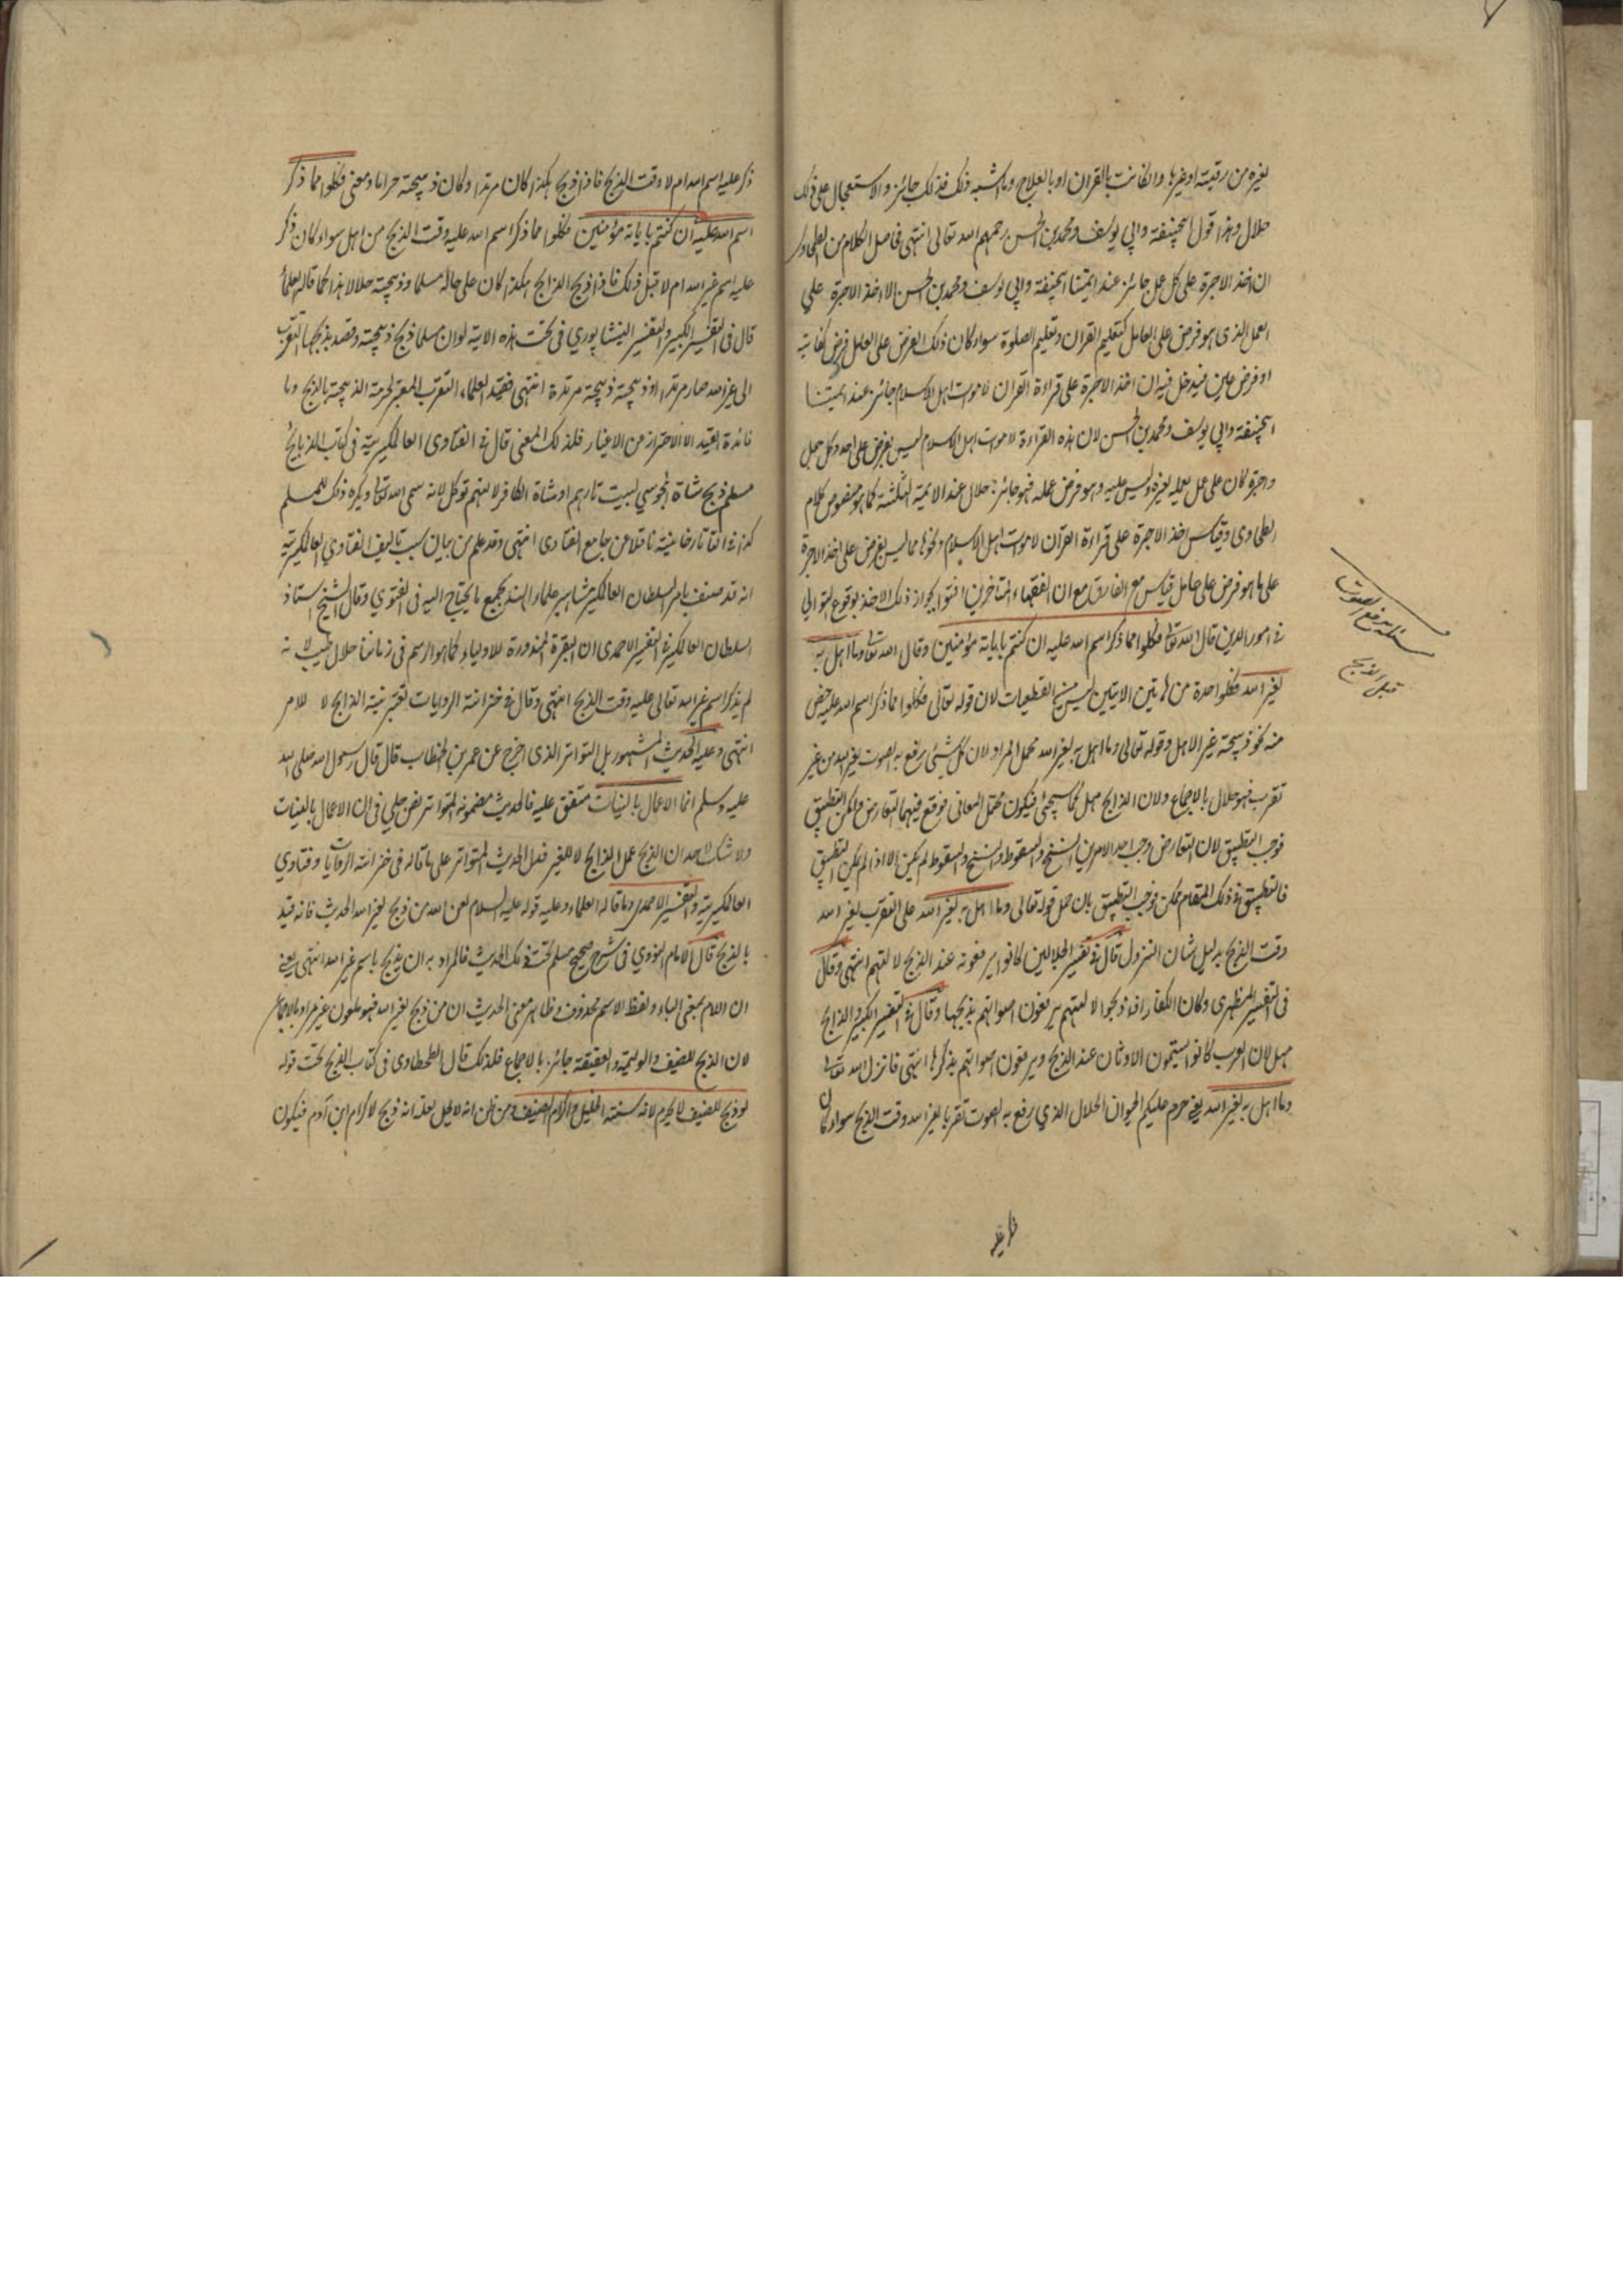 لغيره من رقيته او غيرها وان كانت بالقران او بالعلاج وما اشبه ذلك فذلك جائز والاستعجال على ذلك
حلال وهذا قول ابيحنيفة وابي يوسف ومحمد بن الحسن رحمهم الله تعالى انتهى فاصل الكلام من الطحاوي
ان اخذ الاجرة على كل عمل جائز عند ايمتنا ابيحنيفة وابي يوسف ومحمد بن الحسن الا اخذ الاجرة علي
العمل الذى هو فرض على العامل كتعليم القران وتعليم الصلوة سواء كان ذلك الفرض على العامل فرض كفاية
او فرض عين فيدخل فيه ان اخذ الاجرة على قراءة القران لاموات اهل الاسلام جائز عند ايمتنا
ابيحنيفة وابي يوسف ومحمد بن الحسن لان هذه القراءة لاموات اهل الاسلام ليس بفرض على احد وكل عمل
واجرة كان على عمل يعمله لغيره وليس عليه وهو فرض عمله فهو جائز حلال عند الايمة الثلثة كما هو منصوص كلام
الطحاوى وقياس اخذ الاجرة على قراءة القران لاموات اهل الاسلام ونحوها مما ليس بفرض على اخذ الاجرة
على ما هو فرض على عامل قياس مع الفارق مع ان الفقهاء المتاخرين افتوا بجواز ذلك الاخذ بوقوع التواني
فى امور الدين قال الله تعالى فكلوا مما ذكر اسم الله عليه ان كنتم باياته مؤمنين وقال الله تعالى وما اهل به
لغير الله فكلوا حدة من هاتين الايتين ليس من القطعيات لان قوله تعالى فكلوا مما ذكر اسم الله عليه خص
منه نحو ذبيحة غير الاهل وقوله تعالى وما اهل به لغير الله مجمل المراد لان كل شئ رفع به الصوت لغير الله من غير
تقرب فهو حلال بالاجماع ولان الذابح مهل كما سيجئ فيكون محتمل المعانى فوقع فيهما التعارض ولكن التطبيق
فوجب التطبيق لان التعارض وجب احد الامرين النسخ والسقوط والنسخ والسقوط لم يكن الا اذا لم يكن التطبيق
فالتطبيق فى ذلك المقام ممكن فوجب التطبيق بان حمل قوله تعالى وما اهل به لغير الله على التقرب لغير الله
وقت الذبح بدليل شان النزول قال فى تفسير الجلالين كانوا يرفعونه عند الذبح لالهتهم انتهى وقال
فى التفسير المظهرى وكان الكفار اذا ذبحوا لالهتهم يرفعون اصواتهم بذبحها وقال فى التفسير الكبير والذابح
مهل لان العرب كانوا يسمون الاوثان عند الذبح ويرفعون اصواتهم بذكرها انتهى فانزل الله تعالى
وما اهل به لغير الله يعنى حرم عليكم الحيوان الحلال الذي رفع به الصوت تقربا لغير الله وقت الذبح سواء كان
مسئلة رفع الصوت
قبل الذبح
ذكر عليه اسم الله ام لا وقت الذبح فاذا ذبح هكذا كان مرتدا وكان ذبيحته حراما ومعنى فكلوا مما ذكر
اسم الله عليه ان كنتم باياته مؤمنين فكلوا مما ذكر اسم الله عليه وقت الذبح من اهل سواء كان ذكر
عليه اسم غير الله ام لا قبل ذلك فاذا ذبح الذابح هكذا كان على حاله مسلما وذبيحته حلالا هذا كما قاله العلماء
قال فى التفسير الكبير والتفسير النيشاپوري فى تحت هذه الاية لو ان مسلما ذبح ذبيحته وقصد بذبحها التقرب
الى غير الله صار مرتدا وذبيحته ذبيحة مرتدة انتهى فقيد العلماء التقرب المعتبر لحرمة الذبيحة بالذبح وما
فائدة القيد الا الاحتراز عن الاغيار فلذلك المعنى قال فى الفتاوى العالمكيرية فى كتاب الذبايح
مسلم ذبح شاة المجوسي لبيت نارهم او شاة الكافر لالهتهم توكل لانه سمى الله تعالى ويكره ذلك للمسلم
كذا فى التاتارخانية ناقلا عن جامع الفتاوى انتهى وقد علم من بيان سبب تاليف الفتاوي العالمكيرية
انه قد صنف بامر السلطان العالمكير مشاهير علماء الهند بجمع ما يحتاج اليه فى الفتوي وقال الشيخ استاذ
السلطان العالمكير فى التفسير الاحمدى ان البقرة المنذورة للاولياء كما هو الرسم فى زماننا حلال طيب لانه
لم يذكر اسم غير الله تعالى عليه وقت الذبح انتهى وقال فى خزانة الروايات تعتبر نية الذابح لا للامر
انتهى وعليه الحديث المشهور بل المتواتر الذى اخرج عن عمر بن الخطاب قال قال رسول الله صلى الله
عليه وسلم انما الاعمال بالنيات متفق عليه فالحديث مضمونه المتواتر نص جلي فى ان الاعمال بالنيات
ولا شك لاحد ان الذبح عمل الذابح لا للغير فعمل الحديث المتواتر على ما قاله فى خزانة الروايات وفتاوي
العالمكيرية والتفسير الاحمدى وما قاله العلماء وعليه قوله عليه السلام لعن الله من ذبح لغير الله الحديث فانه قيد
بالذبح قال الامام النووي فى شرح صحيح مسلم تحت ذلك الحديث فالمراد به ان يذبح باسم غير الله انتهى يعنى
ان اللام بمعنى الباء ولفظ الاسم محذوف وظاهر معنى الحديث ان من ذبح لغير الله فهو ملعون غير مراد بالاجماع
لان الذبح للضيف والوليمة والعقيقة جائز بالاجماع فلذلك قال الطحطاوى فى كتاب الذبح تحت قوله
لو ذبح للضيف لا يحرم لانه سنة الخليل واكرام الضيف ومن ظن انه لا يحل بعلة انه ذبح لاكرام ابن ادم فيكون